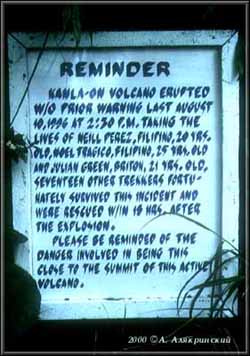 REMINDER
KANLA-ON VOLCANO ERUPTED
W/O PRIOR WARNING LAST AUGUST
10, 1996 AT 2:30 P.M. TAKING THE
LIVES OF NEILL PEREZ, FILIPINO, 20 YRS.
OLD, NOEL TRAGICO, FILIPINO, 25 YRS. OLD
AND JULIAN GREEN, BRITON, 21 YRS. OLD,
SEVENTEEN OTHER TREKKERS FORTU-
NATELY SURVIVED THIS INCIDENT AND
WERE RESCUED W/IN 18 HRS. AFTER
THE EXPLOSION.
PLEASE BE REMINDED OF THE
DANGER INVOLVED IN BEING THIS
CLOSE TO THE SUMMIT OF THIS ACTIVE
VOLCANO.
2000 ©А. Алякринский